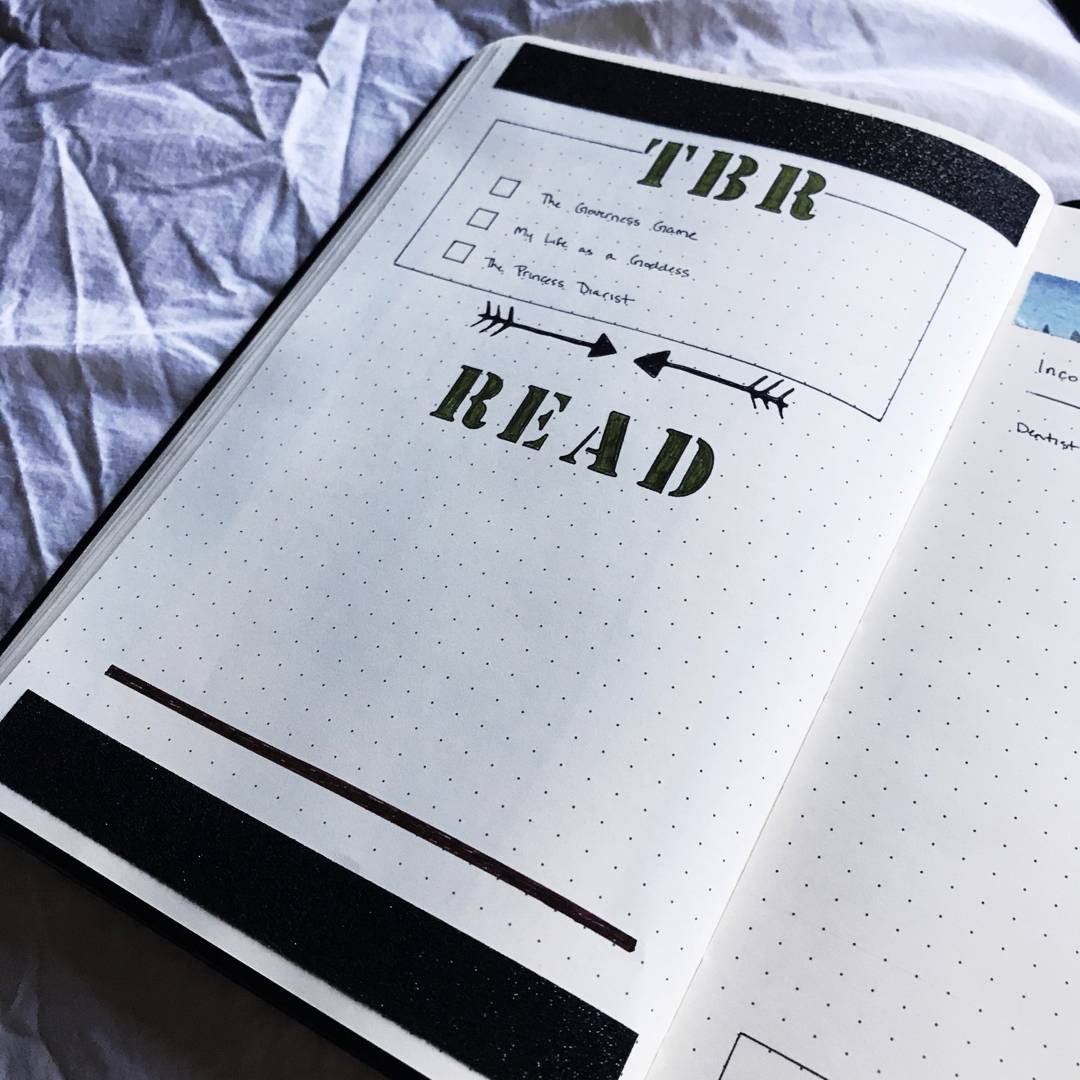 TBR
The Governess Game
My Life as a Goddess
The Princess Diarist
READ
Inco
Dentist